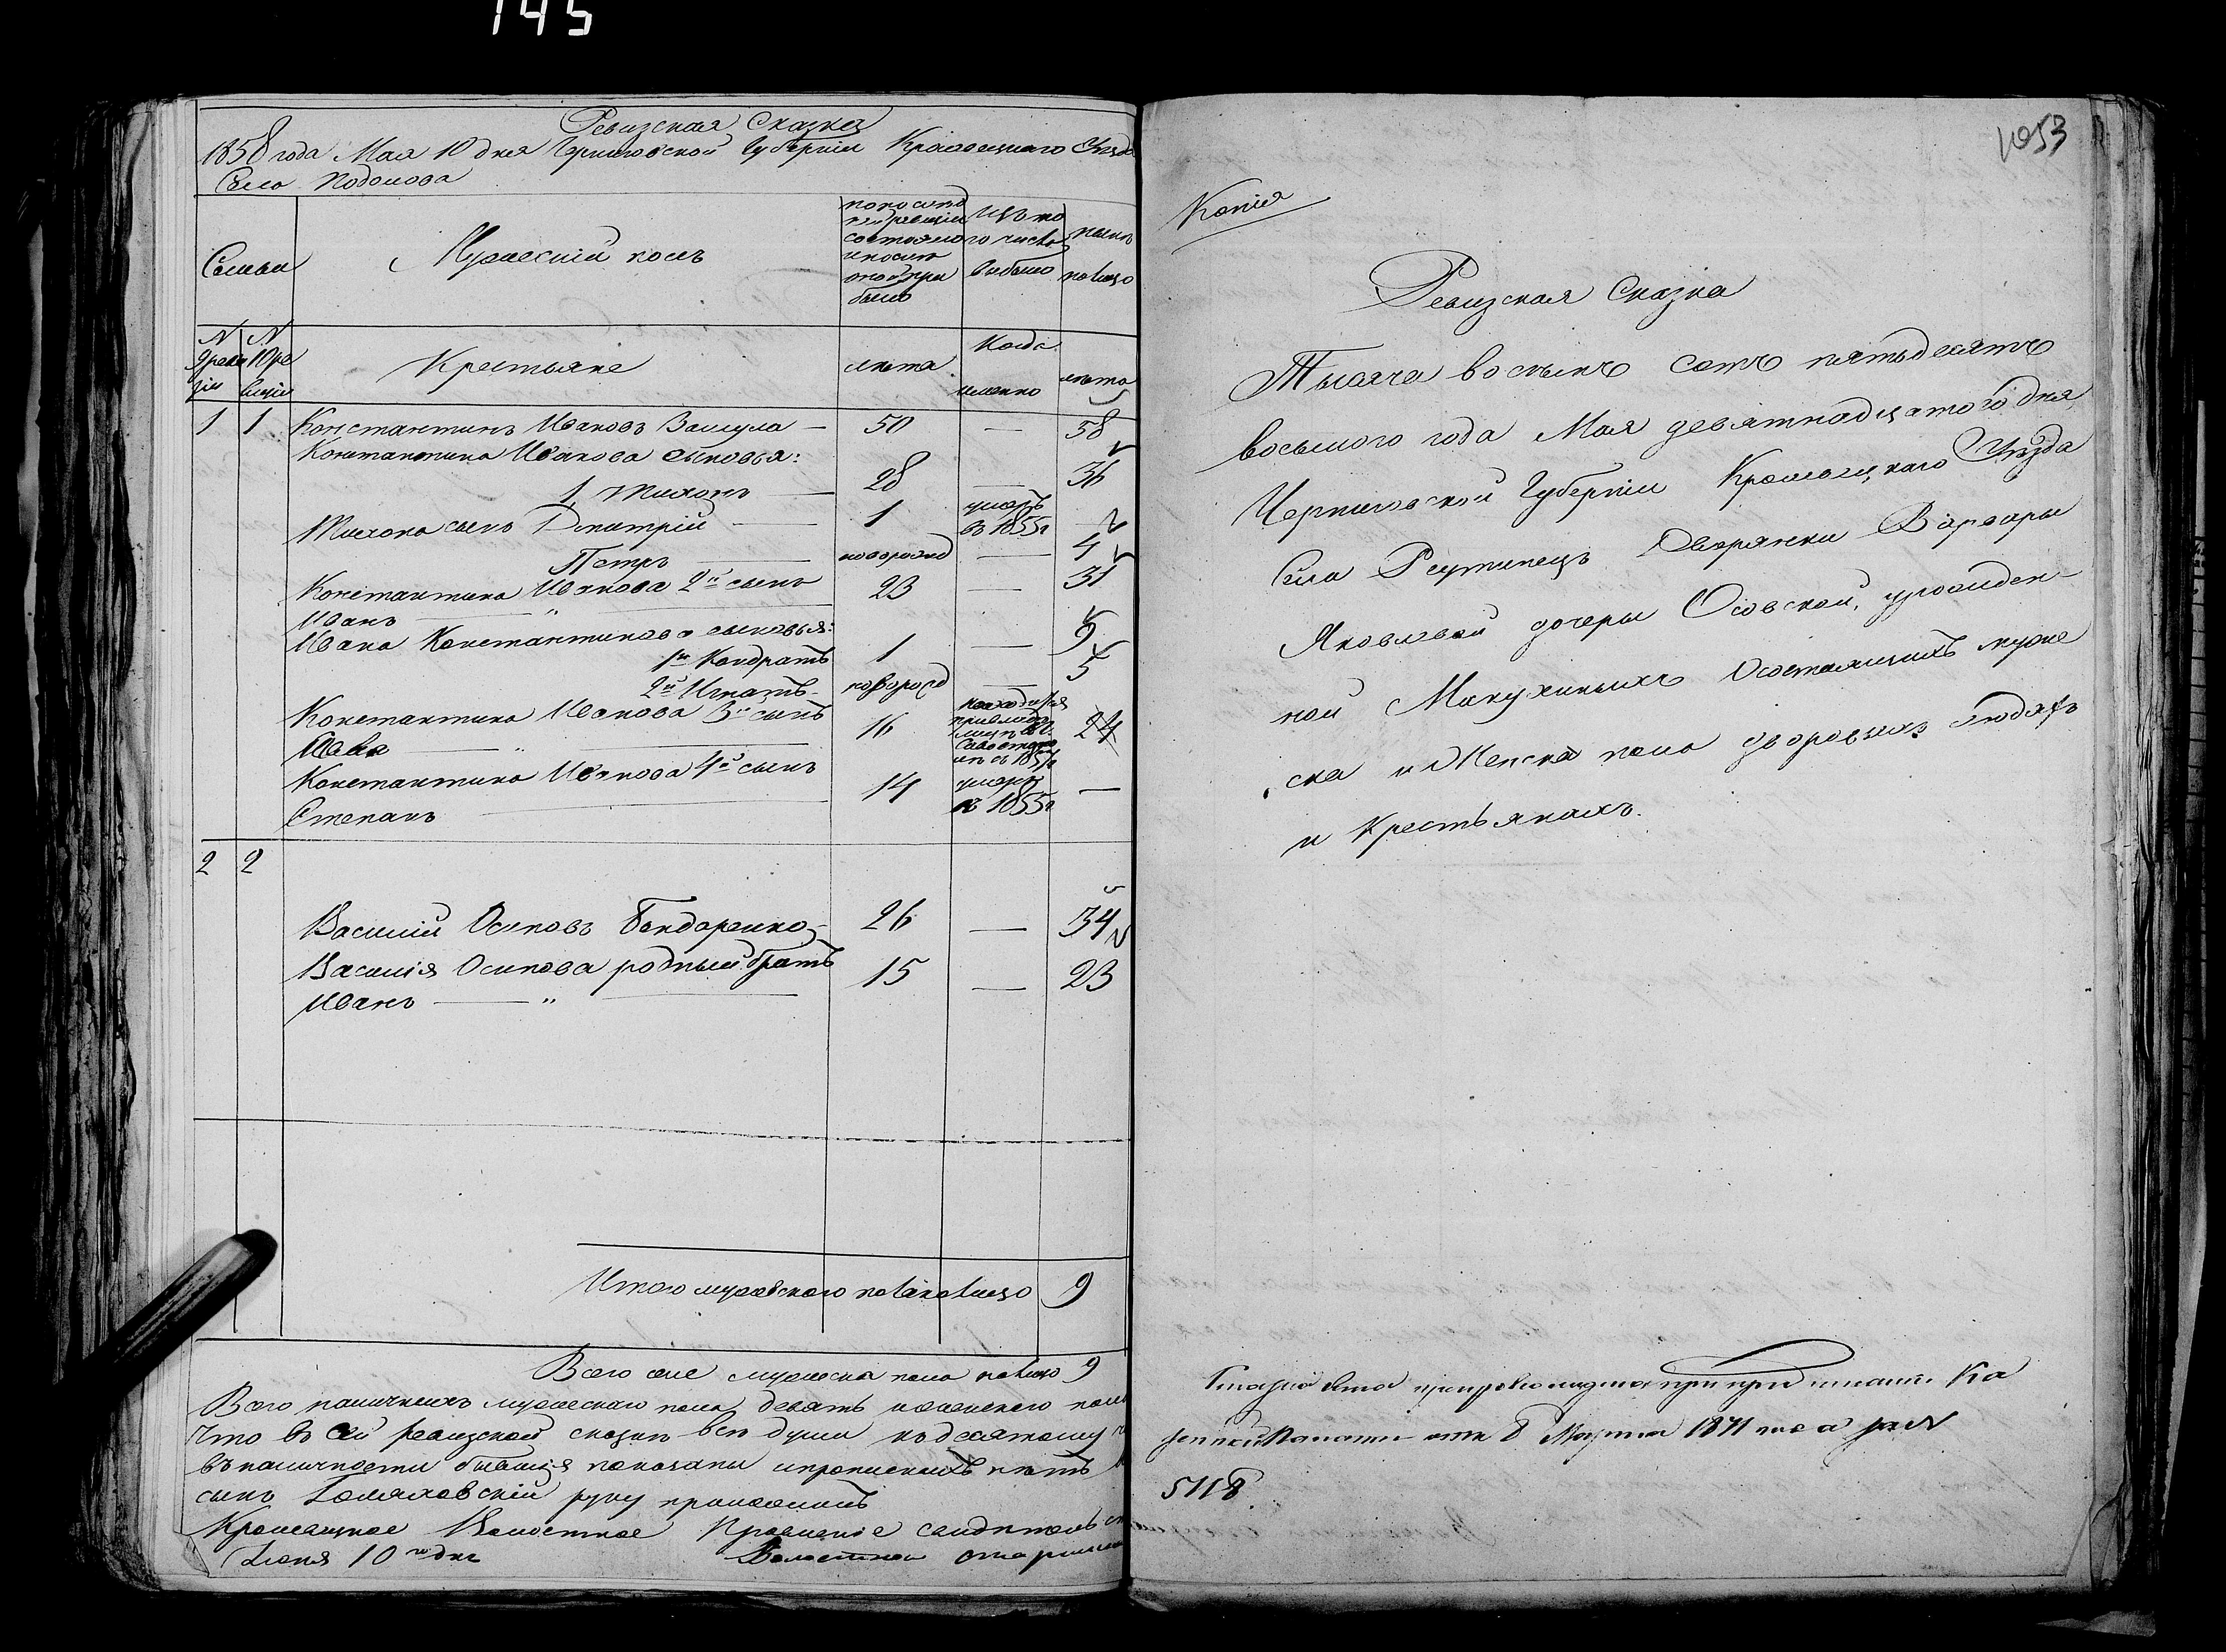 145
Ревизская Сказка
1858 года Мая 10 дня Черниговской Губернии Кролевецкаго Уезда
Село Подолова
Семьи
Мужеский полъ
по последней ревизии состояло и после того прибыло
Изъ того числа выбыло
ныне налицо
N 9 ревизіи
N 10 ревизіи
Крестьяне
лета
Когда именно
лета
1 1 Константинъ Ивановъ Вашула — 50 — 58
Константина Иванова сыновья:
1 Тихонъ — 28 — 36
Тихона сынъ Дмитрій — 1 умеръ въ 1855 г
Петръ — новорожд — 4
Константина Иванова 2й сынъ 23 — 31
Иванъ — " —
Ивана Константинова сыновья:
1й Кондратъ 1 — 9
2й Игнатъ - новорожд — 5
Константина Иванова 3й сынъ 16 24
— " —
Константина Иванова 4й сынъ 14 умеръ въ 1855 г —
Степанъ —
2 2
Василій Осиповъ Бондаренко - 26 — 34
Василія Осипова родный братъ 15 — 23
Иванъ — " —
Итого мужескаго пола налицо 9
Всего же мужеска пола налицо 9
Всего наличныхъ мужескаго пола девять и женского пола
Что въ сей ревизской сказке все души къ десятому
въ наличности бывшія показаны и прописныхъ нетъ
сынъ руку приложилъ
Волостное Правленіе
Іюня 10 го дня Волостной старшина
1053
Копія
Ревизская Сказка
Тысяча восемь сотъ пятьдесятъ
восьмого года Мая девятнадцатого дня,
Черниговской Губерніи Кролевецкаго Уезда
Села Реутинецъ Дворянки Варвары
Яковлевой дочери Осовской, урожден-
ной О состоящихъ муже
ска и Женска пола дворовыхъ людяхъ
и Крестьянахъ.
Сказка эта препровождена при предписаніи Ка
зенной Палаты отъ 8 Марта 1871 года за N
5118.